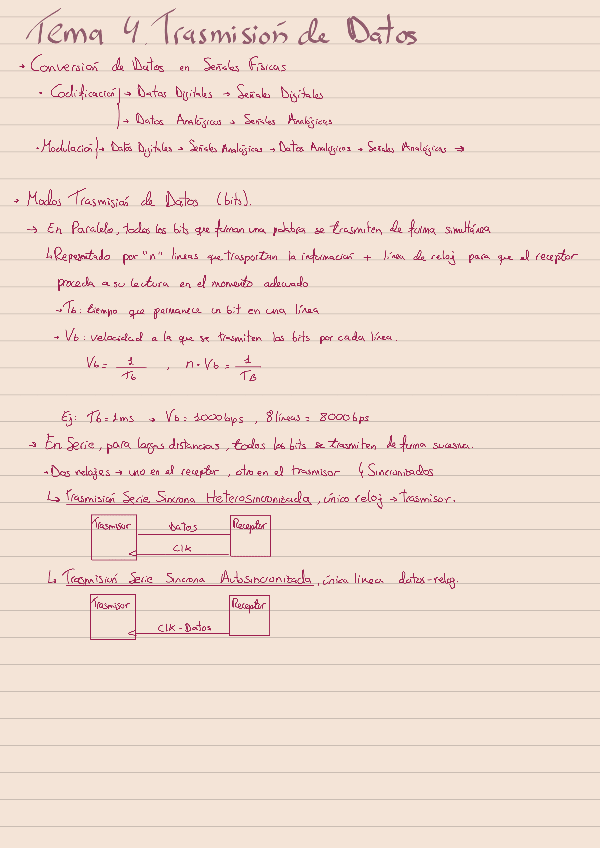 Tema 4. Trasmisión de Datos
→ Conversión de Datos en Señales Físicas
· Codificación → Datos Digitales → Señales Digitales
→ Datos Analógicos → Señales Analógicas
· Modulación → Datos Digitales → Señales Analógicas → Datos Analógicos → Señales Analógicas ⇒
→ Modos Trasmisión de Datos (bits).
→ En Paralelo, todos los bits que forman una palabra se trasmiten de forma simultánea
↳ Representado por "n" líneas que trasportan la información + línea de reloj para que el receptor
proceda a su lectura en el momento adecuado
→ Tb: tiempo que permanece un bit en una línea
→ Vb: velocidad a la que se trasmiten los bits por cada línea.
Vb = 1/Tb , n · Vb = 1/TB
Ej: Tb = 1ms → Vb = 1000bps , 8 líneas = 8000bps
→ En Serie, para largas distancias, todos los bits se trasmiten de forma sucesiva.
→ Dos relojes → uno en el receptor, otro en el trasmisor ↳ Sincronizados
↳ Trasmisión Serie Síncrona Heterosincronizada, único reloj → trasmisor.
Trasmisor Datos Receptor
Clk
↳ Trasmisión Serie Síncrona Autosincronizada, única línea datos-reloj.
Trasmisor Receptor
Clk - Datos